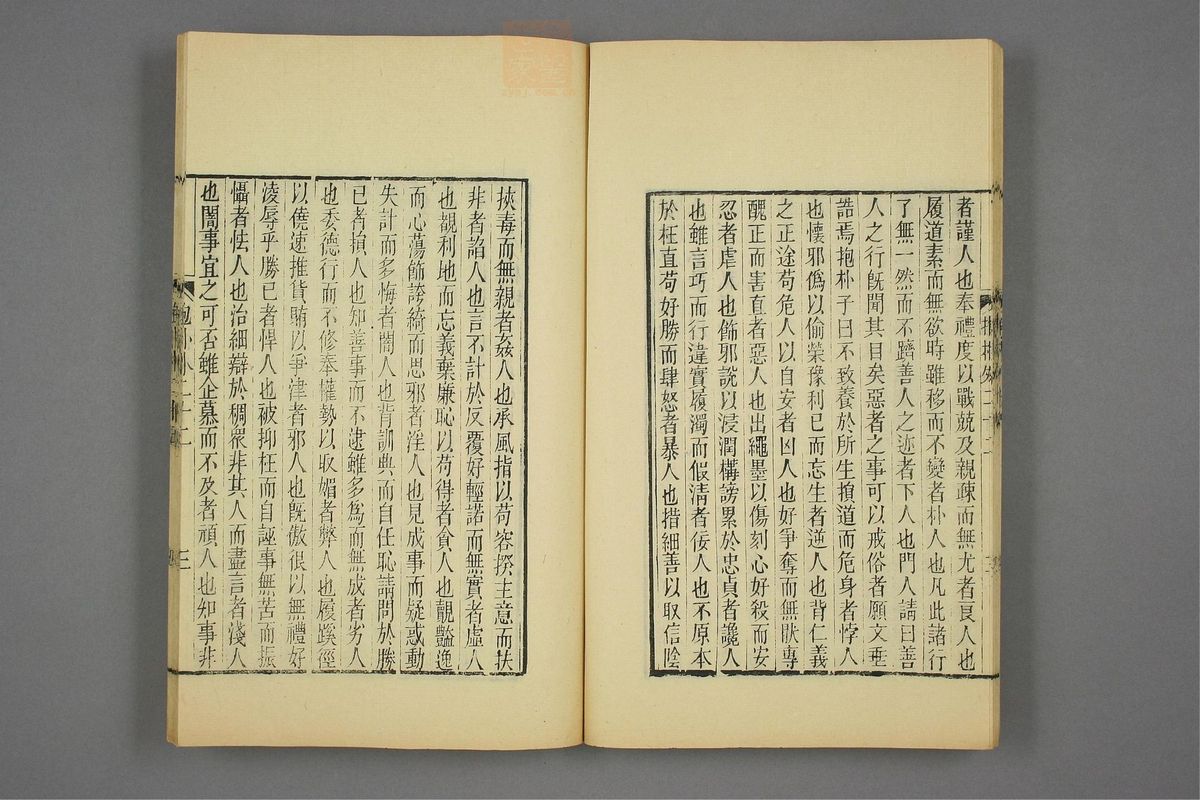 者謹人也奉禮度以戰兢及親疎而無尤者良人也
履道素而無欲時雖移而不變者朴人也凡此諸行
了無一然而不躋善人之迹者下人也門人請曰善
人之行旣聞其目矣惡者之事可以戒俗者願文垂
誥焉抱朴子曰不致養於所生損道而危身者悖人
也懷邪僞以偷榮豫利已而忘生者逆人也背仁義
之正途苟危人以自安者凶人也好爭奪而無猒專
醜正而害直者惡人也出繩墨以傷刻心好殺而安
忍者虐人也飾邪說以浸潤構謗累於忠貞者讒人
也雖言巧而行違實履濁而假淸者佞人也不原本
於枉直苟好勝而肆怒者暴人也措細善以取信陰
挾毒而無親者姦人也承風指以苟容揆主意而扶
非者諂人也言不計於反覆好輕諾而無實者虛人
也覩利地而忘義棄廉恥以苟得者貪人也覿豔逸
而心蕩飾誇綺而思邪者淫人也見成事而疑惑動
失計而多悔者闇人也背訓典而自任恥請問於勝
已者損人也知善事而不逮雖多爲而無成者劣人
也委德行而不修奉權勢以取媚者弊人也履蹊徑
以僥速推貨賄以爭津者邪人也旣傲很以無禮好
淩辱乎勝已者悍人也被抑枉而自誣事無苦而振
懾者怯人也治細辯於稠衆非其人而盡言者淺人
也闇事宜之可否雖企慕而不及者頑人也知事非
抱朴外二十二
三